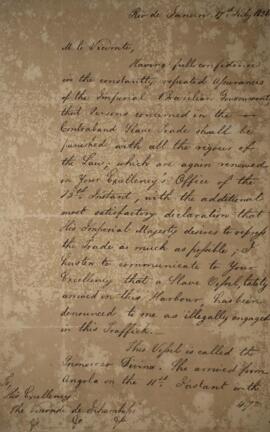 Rio de Janeiro 17th July 1830
M. le Vicomte,
Having full confidence
in the constantly repeated assurances
of the Imperial Brazilian Government
that Persons concerned in the
Contraband Slave Trade shall be
punished with all the rigour of
the Law; which are again renewed
in Your Excellency's Office of the
13th Instant, with the additional
most satisfactory declaration that
His Imperial Majesty desires to repress
the Trade as much as possible; I
hasten to communicate to Your
Excellency that a Slave Vessel, lately
arrived in this Harbour, has been
denounced to me as illegally engaged
in this Traffick.
This Vessel is called the
Divino. She arrived from
Angola on the 11th Instant with
His Excellency
The Visconde de
&c &c &c